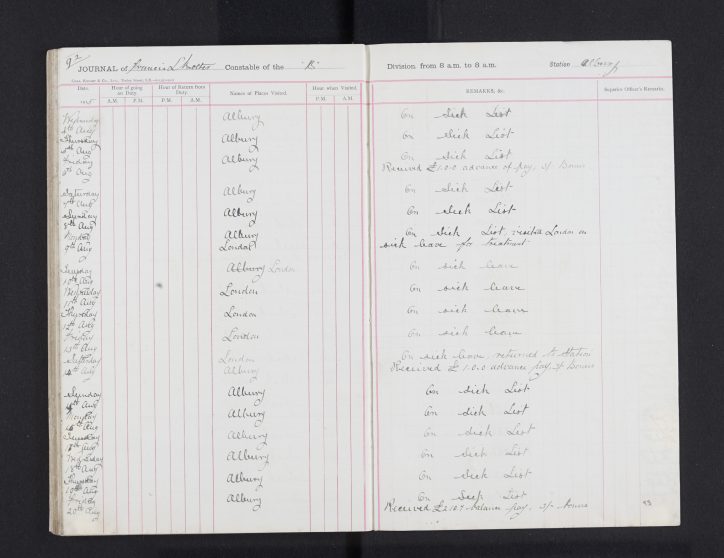 92
JOURNAL of Francis L. Constable of the "B" Division, from 8 a.m. to 8 a.m. Station, Albury
Date. Hour of going on Duty. Hour of Return from Duty. Names of Places Visited. Hour when Visited. REMARKS, &c. Superior Officer's Remarks.
A.M. P.M. P.M. A.M. P.M. A.M.
Wednesday Albury On Sick List
4th Aug
Thursday Albury On Sick List
5th Aug
Friday Albury On Sick List
6th Aug Received £1.0.0 advance of pay, Bonus
Saturday Albury On Sick List
7th Aug
Sunday Albury On Sick List
8th Aug
Monday Albury On Sick List, London on
9th Aug London sick leave for treatment
Tuesday Albury London On sick leave
10th Aug
Wednesday London On sick leave
11th Aug
Thursday London On sick leave
12th Aug
Friday London On sick leave
13th Aug
Saturday London On sick leave, returned to Station
14th Aug Albury Received £1.0.0 advance pay, Bonus
Sunday Albury On Sick List
15th Aug
Monday Albury On Sick List
16th Aug
Tuesday Albury On Sick List
17th Aug
Wednesday Albury On Sick List
18th Aug
Thursday Albury On Sick List
19th Aug
Friday Albury On Sick List
20th Aug Received balance pay, Bonus
93